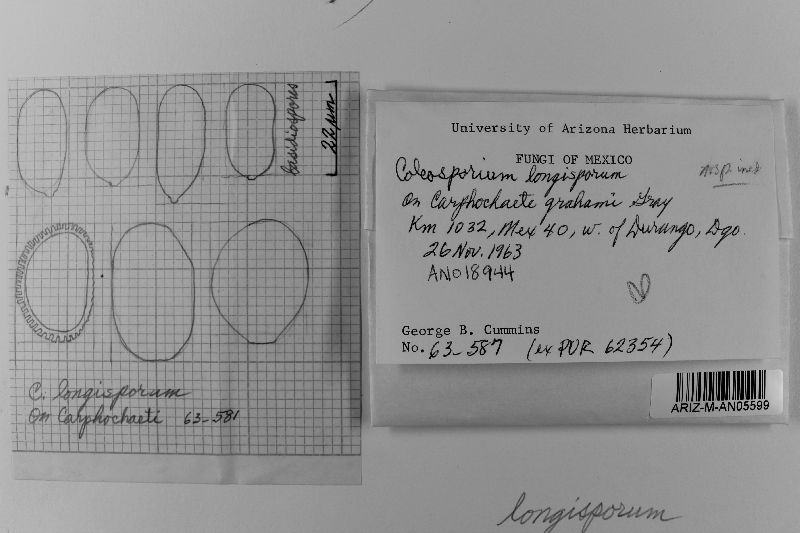 basidiospores
22 µm
C. longisporum
On Carphochaete 63-581
University of Arizona Herbarium
FUNGI OF MEXICO
Coleosporium longisporum
n sp. ined
On Carphochaete grahami Gray
Km 1032, Mex 40, w. of Durango, Dgo.
26 Nov. 1963
AN018944
George B. Cummins
No. 63-587 (ex PUR 62354)
ARIZ-M-AN05599
longisporum